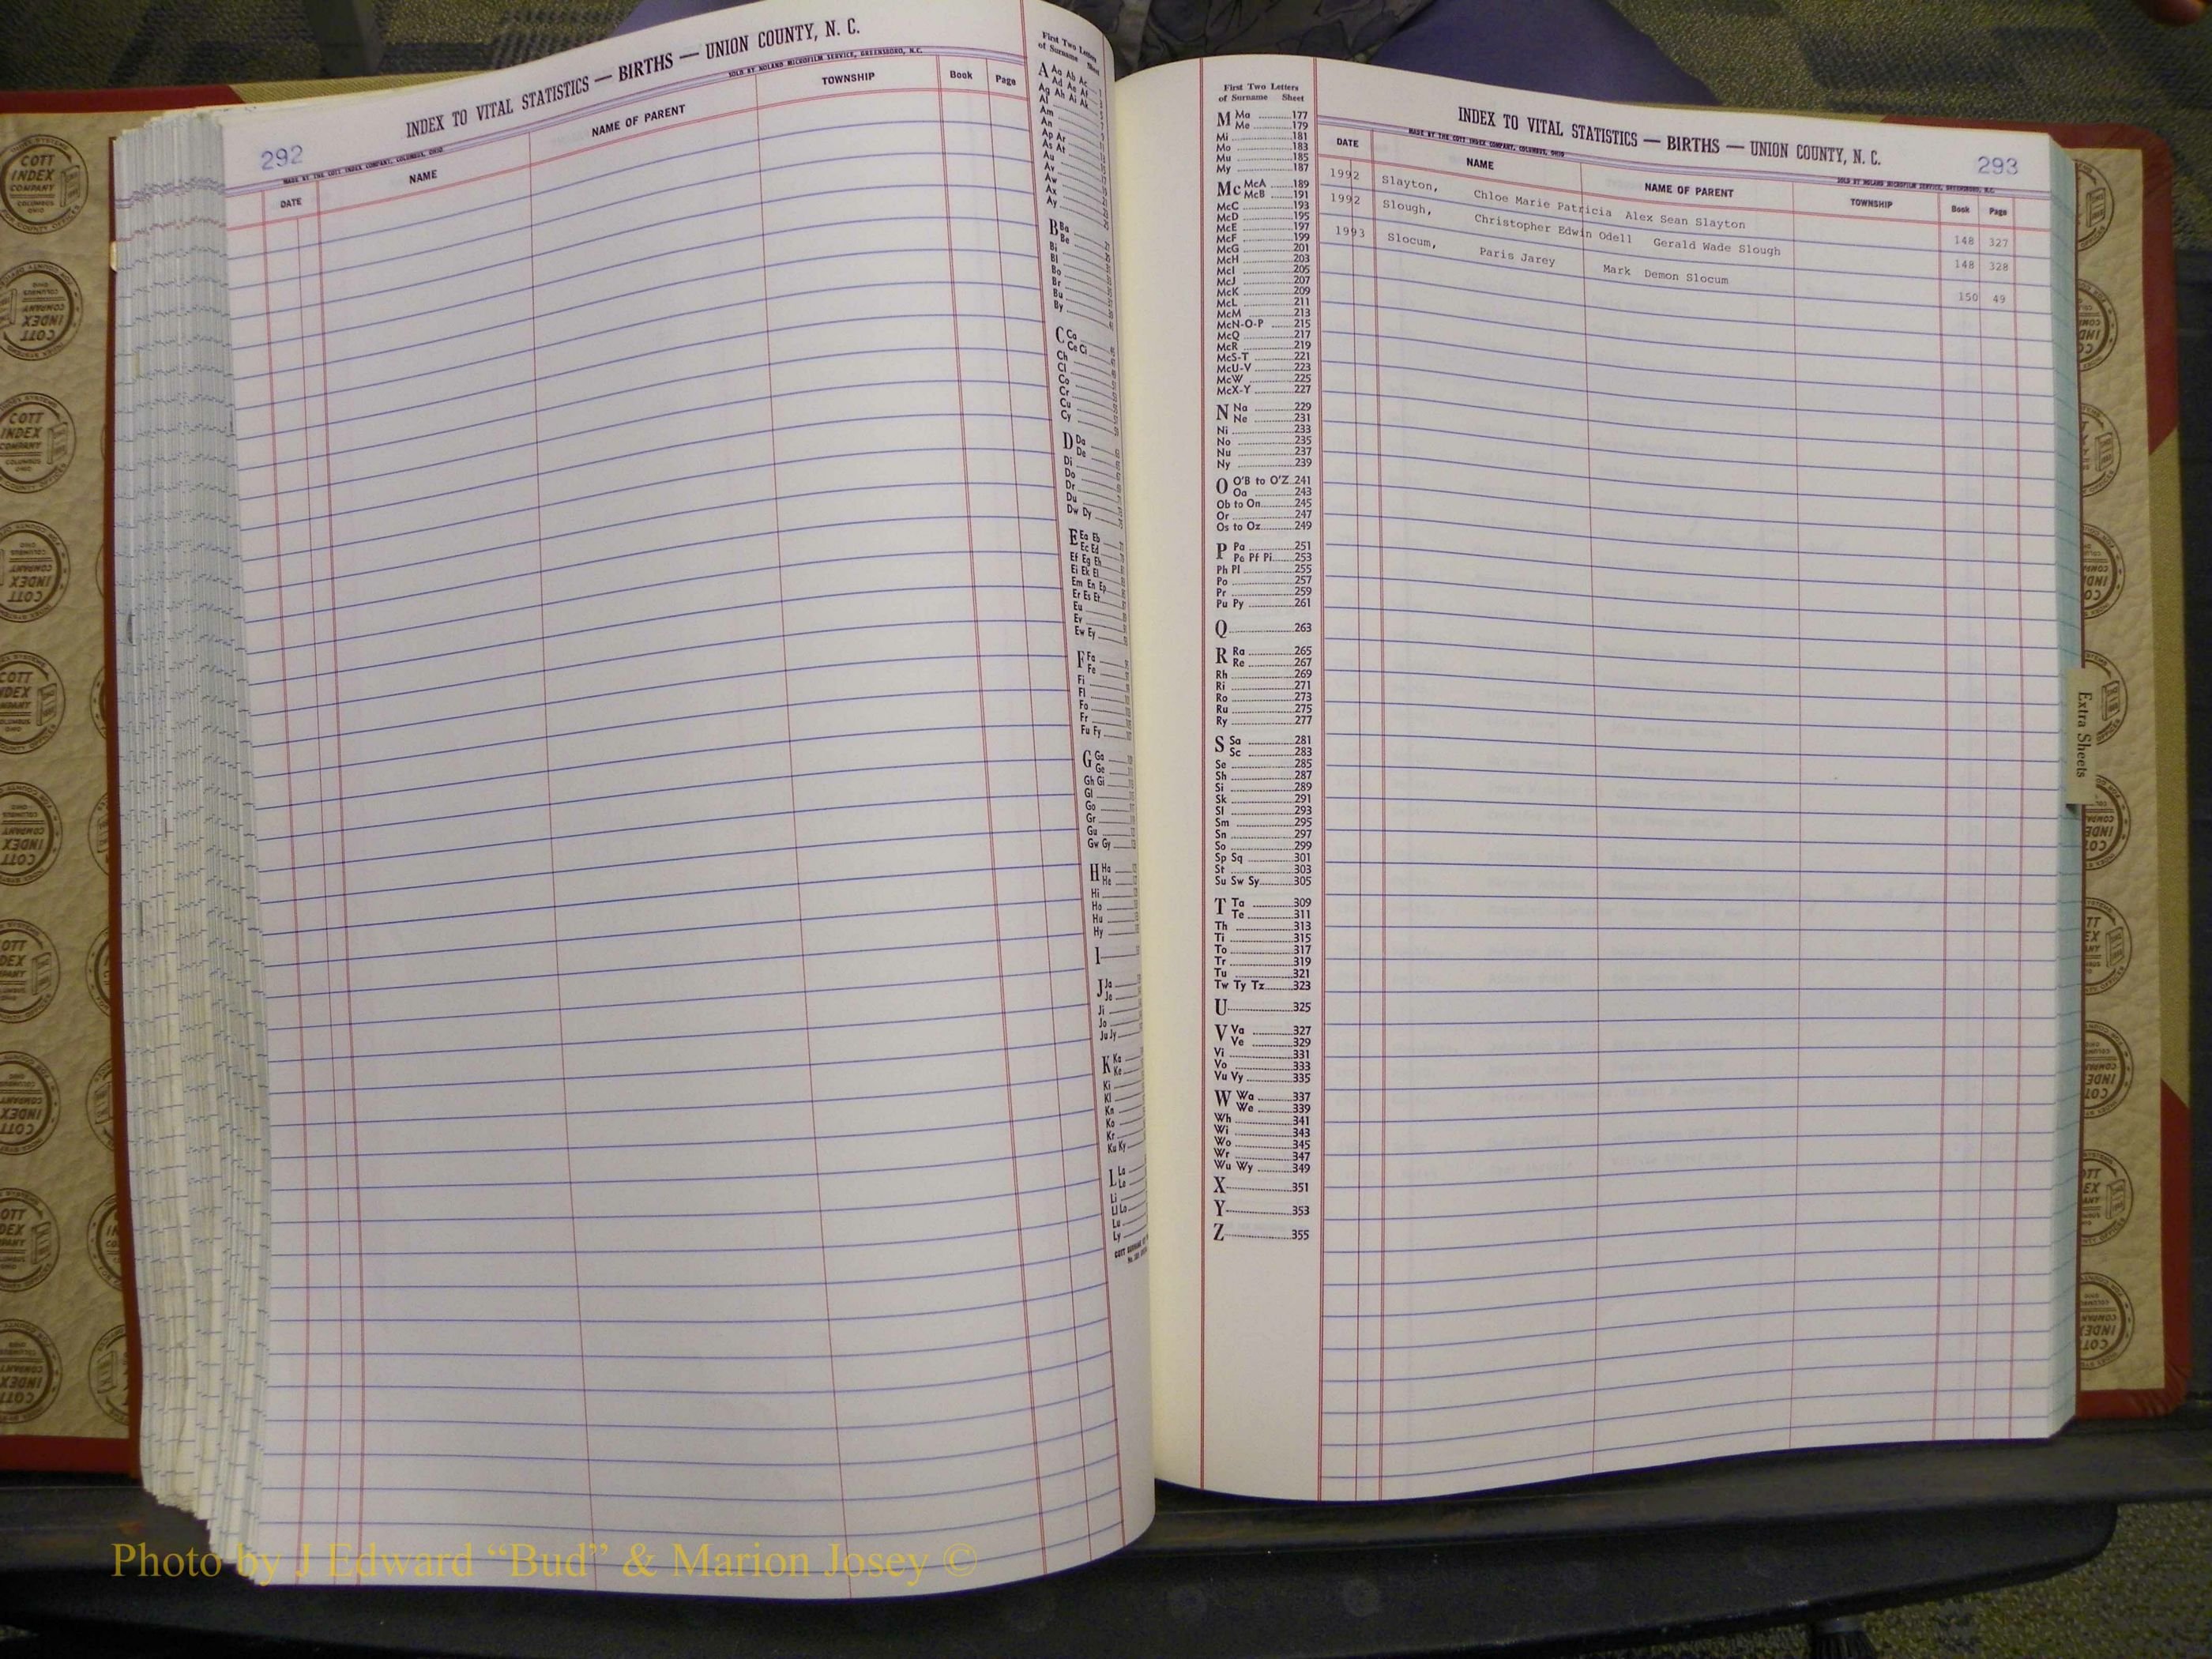 292
INDEX TO VITAL STATISTICS — BIRTHS — UNION COUNTY, N. C.
MADE BY THE COTT INDEX COMPANY, COLUMBUS, OHIO
SOLD BY NOLAND MICROFILM SERVICE, GREENSBORO, N.C.
DATE NAME NAME OF PARENT TOWNSHIP Book Page
First Two Letters
of Surname Sheet
A Aa Ab Ac
Ad Ae Af
Ag Ah Ai Ak
Al
Am
An
Ap Ar
As At
Au
Av
Aw
Ax
Ay
B Ba
Be
Bi
Bl
Bo
Br
Bu
By
C Ca
Ce Ci
Ch
Cl
Co
Cr
Cu
Cy
D Da
De
Di
Do
Dr
Du
Dw Dy
E Ea Eb
Ec Ed
Ef Eg Eh
Ei Ek El
Em En Ep
Er Es Et
Eu
Ev
Ew Ey
F Fa
Fe
Fi
Fl
Fo
Fr
Fu Fy
G Ga
Ge
Gh Gi
Gl
Go
Gr
Gu
Gw Gy
H Ha
He
Hi
Ho
Hu
Hy
I
J Ja
Je
Ji
Jo
Ju Jy
K Ka
Ke
Ki
Kl
Kn
Ko
Kr
Ku Ky
L La
Le
Li
Ll Lo
Lu
Ly
First Two Letters
of Surname Sheet
M Ma 177
Me 179
Mi 181
Mo 183
Mu 185
My 187
Mc McA 189
McB 191
McC 193
McD 195
McE 197
McF 199
McG 201
McH 203
McI 205
McJ 207
McK 209
McL 211
McM 213
McN-O-P 215
McQ 217
McR 219
McS-T 221
McU-V 223
McW 225
McX-Y 227
N Na 229
Ne 231
Ni 233
No 235
Nu 237
Ny 239
O O'B to O'Z 241
Oa 243
Ob to On 245
Or 247
Os to Oz 249
P Pa 251
Pe Pf Pi 253
Ph Pl 255
Po 257
Pr 259
Pu Py 261
Q 263
R Ra 265
Re 267
Rh 269
Ri 271
Ro 273
Ru 275
Ry 277
S Sa 281
Sc 283
Se 285
Sh 287
Si 289
Sk 291
Sl 293
Sm 295
Sn 297
So 299
Sp Sq 301
St 303
Su Sw Sy 305
T Ta 309
Te 311
Th 313
Ti 315
To 317
Tr 319
Tu 321
Tw Ty Tz 323
U 325
V Va 327
Ve 329
Vi 331
Vo 333
Vu Vy 335
W Wa 337
We 339
Wh 341
Wi 343
Wo 345
Wr 347
Wu Wy 349
X 351
Y 353
Z 355
INDEX TO VITAL STATISTICS — BIRTHS — UNION COUNTY, N. C.
293
MADE BY THE COTT INDEX COMPANY, COLUMBUS, OHIO
SOLD BY NOLAND MICROFILM SERVICE, GREENSBORO, N.C.
DATE NAME NAME OF PARENT TOWNSHIP Book Page
1992 Slayton, Chloe Marie Patricia Alex Sean Slayton 148 327
1992 Slough, Christopher Edwin Odell Gerald Wade Slough 148 328
1993 Slocum, Paris Jarey Mark Demon Slocum 150 49
Extra Sheets
COTT
INDEX
COMPANY
COLUMBUS
OHIO
Photo by J Edward “Bud” & Marion Josey ©